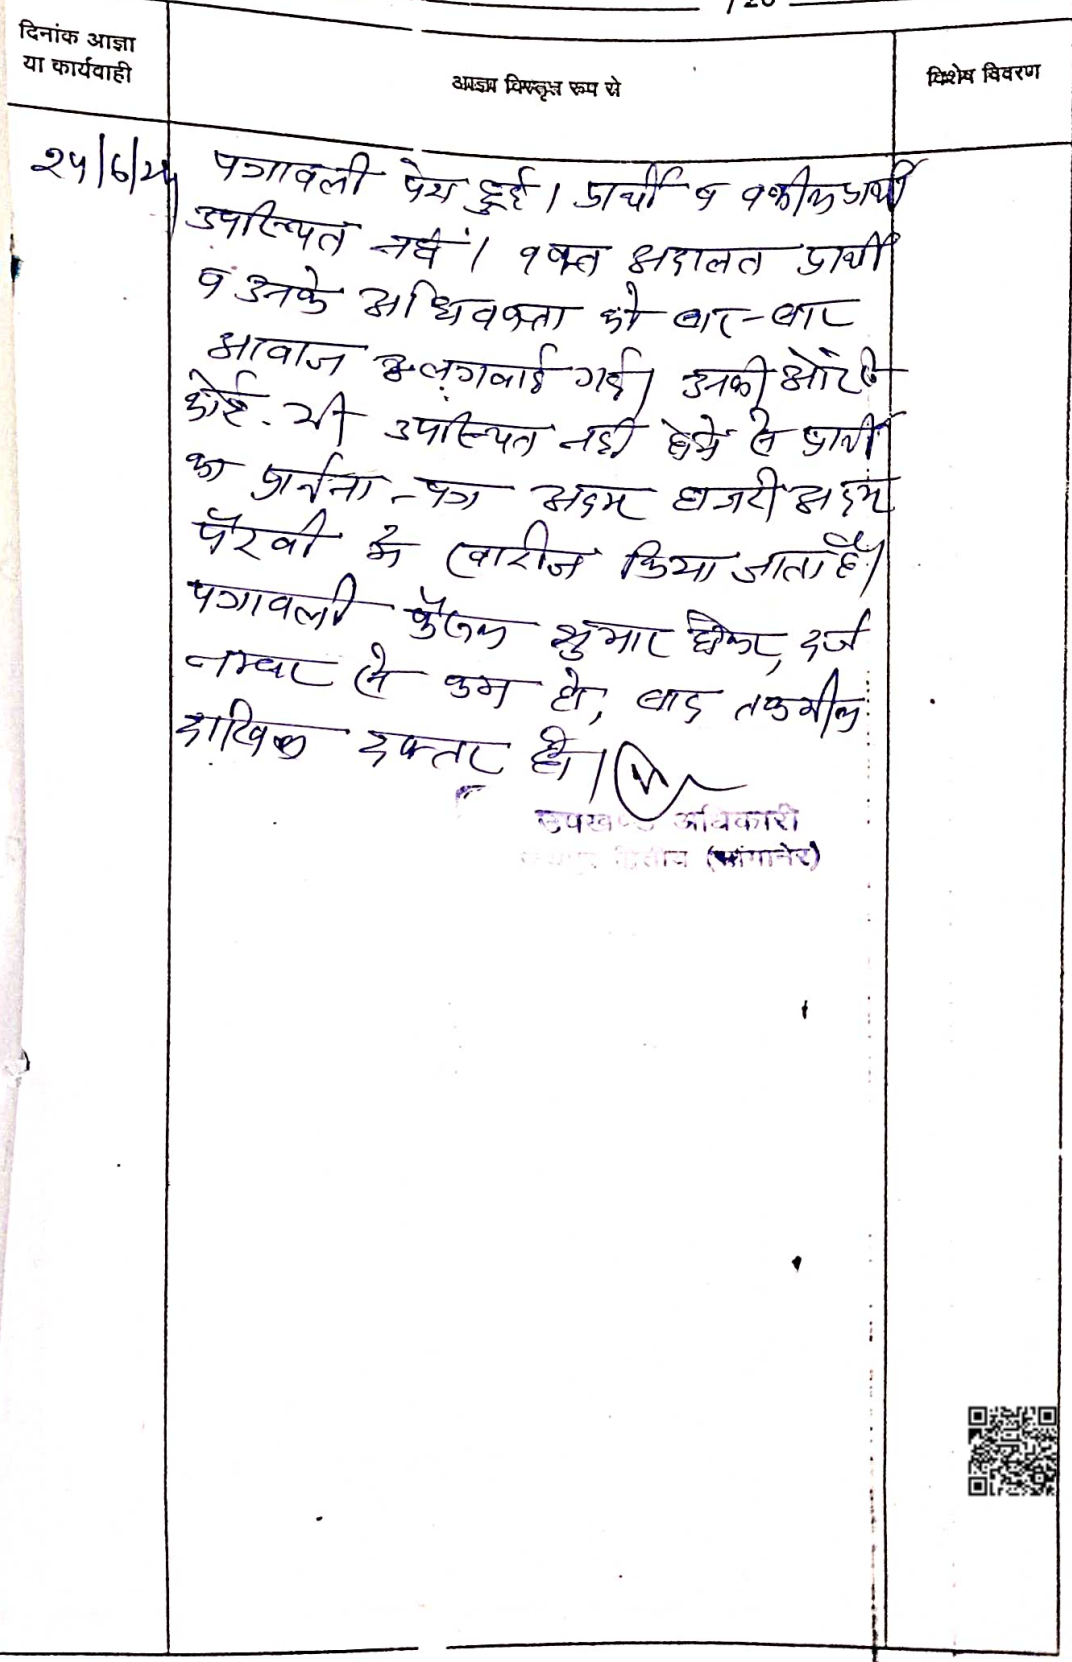 /20
दिनांक आज्ञा
या कार्यवाही
आज्ञा विस्तृत रूप से
विशेष विवरण
२५/6/२५
पत्रावली पेश हुई। प्रार्थी व वकील प्रार्थी
उपस्थित नहीं। वक्त अदालत प्रार्थी
व उनके अधिवक्ता को बार-बार
आवाज लगवाई गई। उनकी ओर से
कोई भी उपस्थित नहीं होने से प्रार्थी
का प्रार्थना-पत्र अदम हाजरी अदम
पैरवी में खारीज किया जाता है।
पत्रावली फैसल शुमार होकर, दर्ज
नम्बर से कम हो, बाद तकमील
दाखिल दफ्तर हो।
उपखण्ड अधिकारी
द्वितीय (सांगानेर)